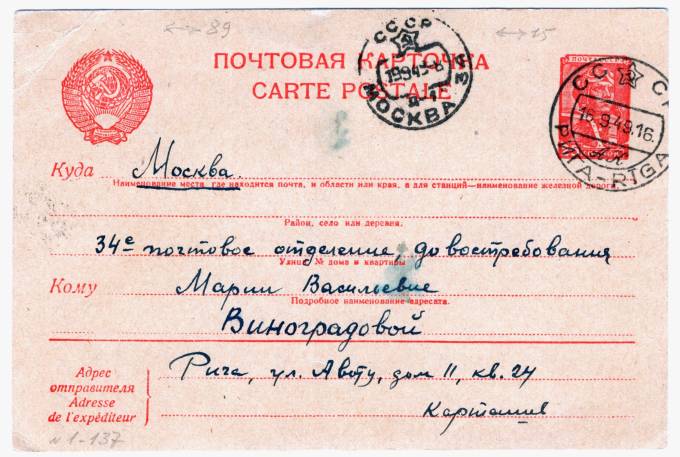 ↔ 89
↔ 15
ПОЧТОВАЯ КАРТОЧКА
CARTE POSTALE
СССР
19949-8
МОСКВА 34
ПОЧТА СССР
СССР
16.9.49.16.
РИГА-RIGA
Куда Москва.
Наименование места, где находится почта, и области или края, а для станций—наименование железной дороги
Район, село или деревня.
34е почтовое отделение, до востребования
Улица, № дома и квартиры
Кому Марии Васильевне
Подробное наименование адресата.
Виноградовой
Адрес отправителя
Adresse de l'expéditeur
Рига, ул. Авоту, дом 11, кв. 24
Карташев
N 1-137